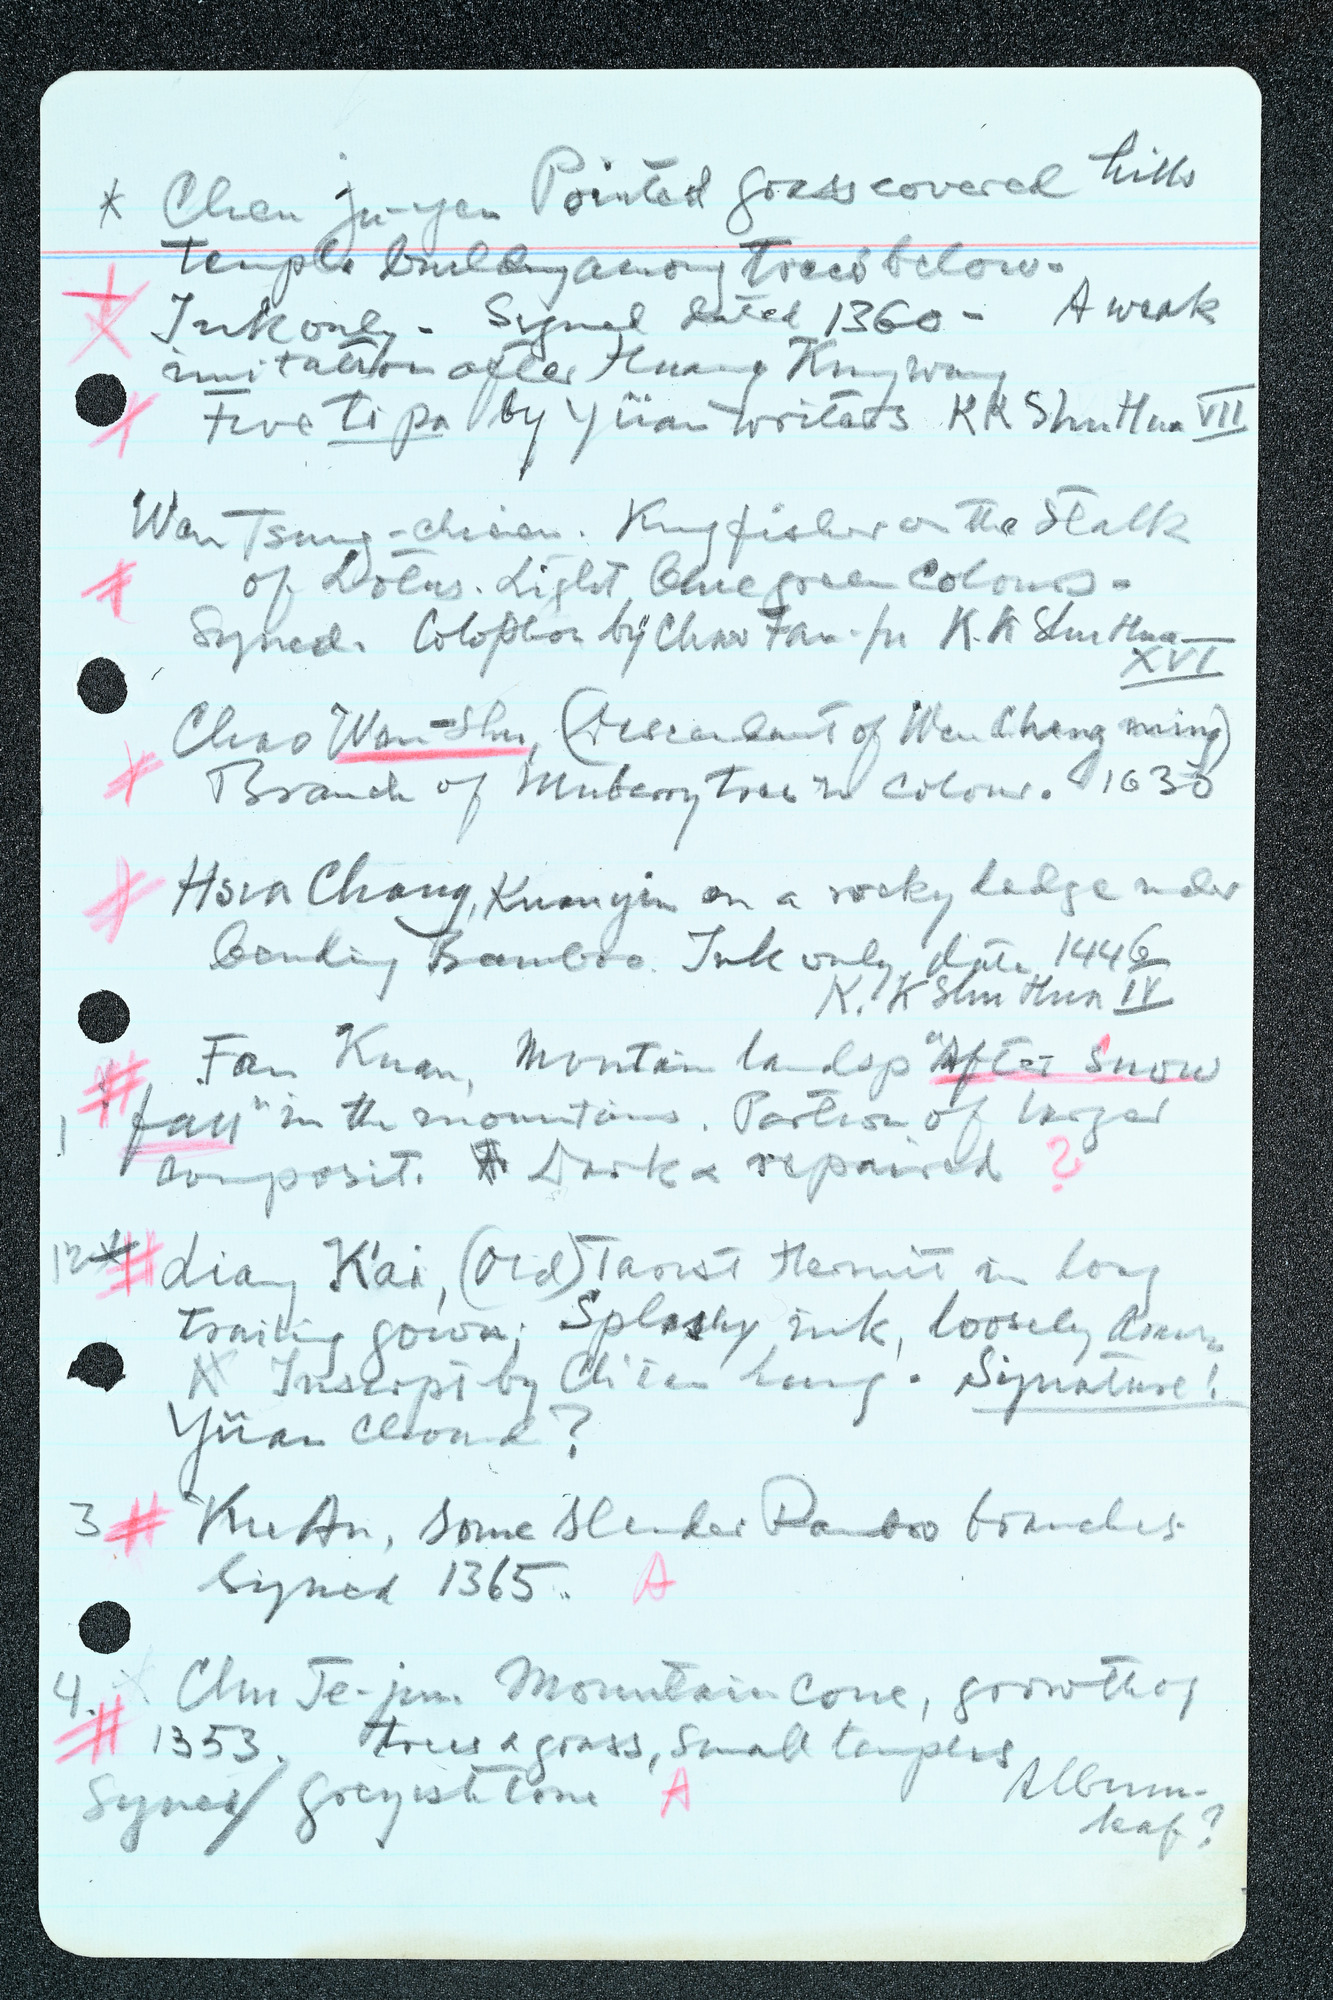 * Chen Ju-yen Pointed grass covered hills
temple building among trees below.
Ink only - Signed dated 1360 - A weak
imitation after Huang Kung wang
Five ti pa by Yüan writers KK Shu Hua VII
Wen Tsung-chien. Kingfisher on the Stalk
# of Lotus. Light blue green colours -
Signed. Colophon by Chao Fan-fu K.K Shu Hua
XVI
Chao Wen-Shu, (descendant of Wen Cheng ming)
# Branch of Muberry tree in colour. 1630
# Hsia Chang, Kuanyin on a rocky ledge under
bending Bamboo. Ink only, date 1446
K.K Shu Hua IV
# Fan Kuan, Montain landsp "After Snow
1 fall" in the mountains. Portion of larger
composit. Dark & repaired ?
# Liang K'ai, (Old) Taoist Hermit in long
trailing gown; Splashy ink, loosely drawn
Inscript by Ch'ien lung. Signature!
Yüan
3 # Ku An, some slender Bamboo branches
Signed 1365. A
4. Chu Te-jun Mountain Cone, growth of
# 1353. trees & grass, small temples
Signed/ Greyish tone A Album-
leaf?